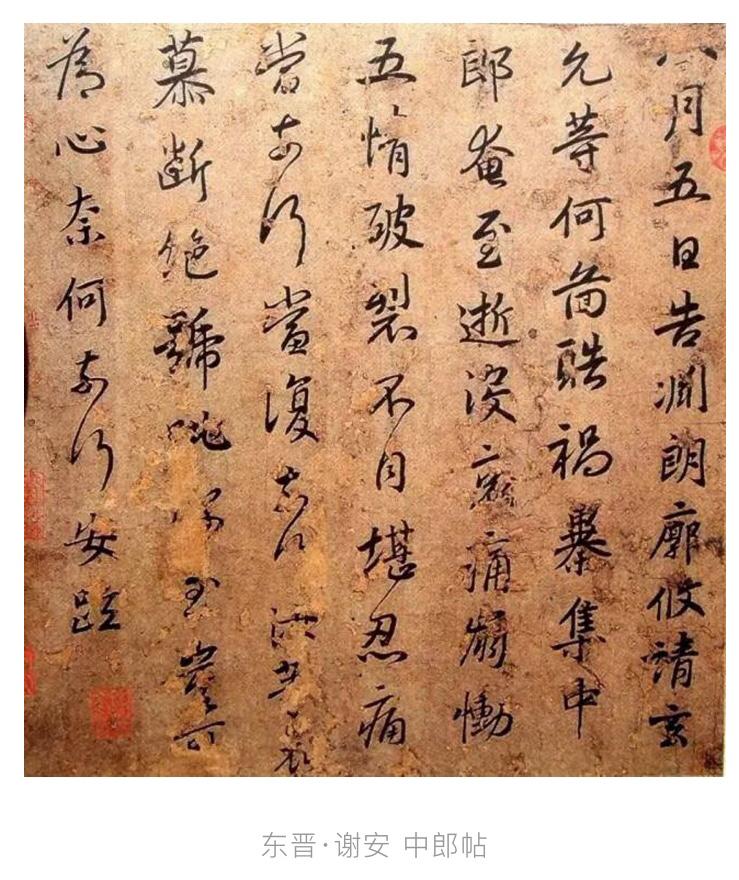 八月五日告淵朗廓攸靖玄
允等何圖酷禍暴集中
郎奄至逝沒哀痛崩慟
五情破裂不自堪忍痛
當奈何當復奈何汝等哀
慕斷絕號咷深至豈可
為心奈何奈何安疏
东晋·谢安 中郎帖